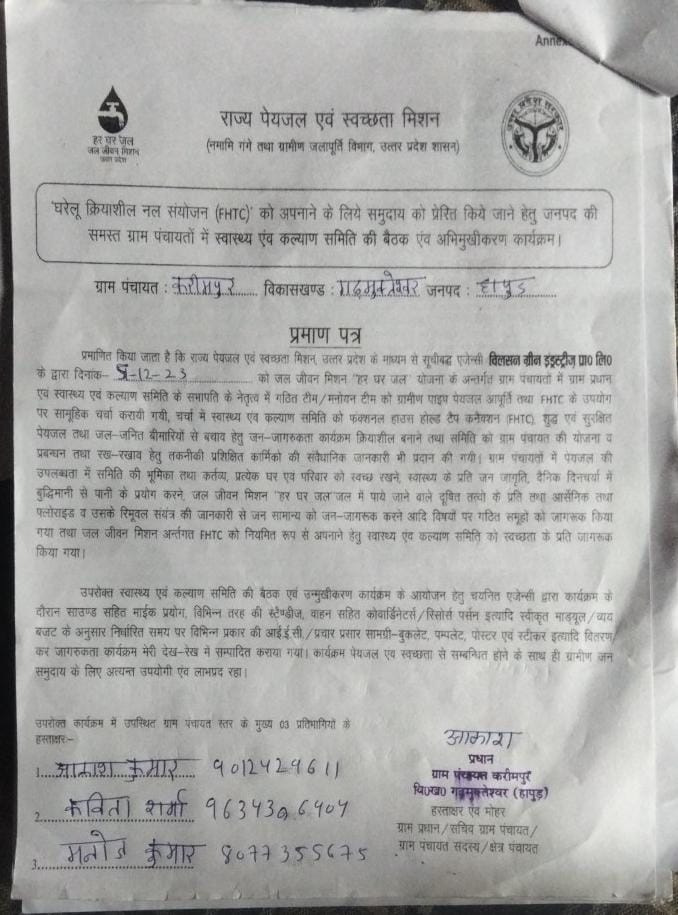 Anne
हर घर जल
जल जीवन मिशन
उत्तर प्रदेश
राज्य पेयजल एवं स्वच्छता मिशन
(नमामि गंगे तथा ग्रामीण जलापूर्ति विभाग, उत्तर प्रदेश शासन)
उत्तर प्रदेश सरकार
'घरेलू क्रियाशील नल संयोजन (FHTC)' को अपनाने के लिये समुदाय को प्रेरित किये जाने हेतु जनपद की
समस्त ग्राम पंचायतों में स्वास्थ्य एंव कल्याण समिति की बैठक एंव अभिमुखीकरण कार्यक्रम।
ग्राम पंचायत : करीमपुर विकासखण्ड : गढ़मुक्तेश्वर जनपद : हापुड
प्रमाण पत्र
प्रमाणित किया जाता है कि राज्य पेयजल एवं स्वच्छता मिशन, उत्तर प्रदेश के माध्यम से सूचीबद्ध एजेन्सी विलसन ग्रीन इंडस्ट्रीज प्रा0 लि0
के द्वारा दिनांक- 5-12-23 को जल जीवन मिशन "हर घर जल" योजना के अन्तर्गत ग्राम पंचायतों में ग्राम प्रधान
एंव स्वास्थ्य एंव कल्याण समिति के सभापति के नेतृत्व में गठित टीम/मनोयन टीम को ग्रामीण पाइप पेयजल आपूर्ति तथा FHTC के उपयोग
पर सामूहिक चर्चा करायी गयी, चर्चा में स्वास्थ्य एंव कल्याण समिति को फंक्शनल हाउस होल्ड टैप कनैक्शन (FHTC), शुद्ध एवं सुरक्षित
पेयजल तथा जल-जनित बीमारियों से बचाव हेतु जन-जागरुकता कार्यक्रम क्रियाशील बनाने तथा समिति को ग्राम पंचायत की योजना व
प्रबन्धन तथा रख-रखाव हेतु तकनीकी प्रशिक्षित कार्मिकों की संवैधानिक जानकारी भी प्रदान की गयी। ग्राम पंचायतों में पेयजल की
उपलब्धता में समिति की भूमिका तथा कर्तव्य, प्रत्येक घर एवं परिवार को स्वच्छ रखने, स्वास्थ्य के प्रति जन जागृति, दैनिक दिनचर्या में
बुद्धिमानी से पानी के प्रयोग करने, जल जीवन मिशन "हर घर जल"जल में पाये जाने वाले दूषित तत्वों के प्रति तथा आर्सेनिक तथा
फ्लोराइड व उसके रिमूवल संयंत्र की जानकारी से जन सामान्य को जन-जागरूक करने आदि विषयों पर गठित समूहों को जागरूक किया
गया तथा जल जीवन मिशन अर्न्तगत FHTC को नियमित रूप से अपनाने हेतु स्वास्थ्य एंव कल्याण समिति को स्वच्छता के प्रति जागरूक
किया गया।
उपरोक्त स्वास्थ्य एवं कल्याण समिति की बैठक एवं उन्मुखीकरण कार्यक्रम के आयोजन हेतु चयनित एजेन्सी द्वारा कार्यक्रम के
दौरान साउण्ड सहित माईक प्रयोग, विभिन्न तरह की स्टैण्डीज, वाहन सहित कोवार्डिनेटर्स/रिसोर्स पर्सन इत्यादि स्वीकृत माड्यूल/व्यय
बजट के अनुसार निर्धारित समय पर विभिन्न प्रकार की आई.ई.सी./प्रचार प्रसार सामग्री-बुकलेट, पम्पलेट, पोस्टर एवं स्टीकर इत्यादि वितरण
कर जागरुकता कार्यक्रम मेरी देख-रेख में सम्पादित कराया गया। कार्यक्रम पेयजल एंव स्वच्छता से सम्बन्धित होने के साथ ही ग्रामीण जन
समुदाय के लिए अत्यन्त उपयोगी एंव लाभप्रद रहा।
उपरोक्त कार्यक्रम में उपस्थित ग्राम पंचायत स्तर के मुख्य 03 प्रतिभागियों के
हस्ताक्षर:-
1. आकाश कुमार 9012429611
2. कविता शर्मा
3. मनोज कुमार 8077355675
आकाश
प्रधान
ग्राम पंचायत करीमपुर
वि0ख0 गढ़मुक्तेश्वर (हापुड़)
हस्ताक्षर एंव मोहर
ग्राम प्रधान/सचिव ग्राम पंचायत/
ग्राम पंचायत सदस्य/क्षेत्र पंचायत